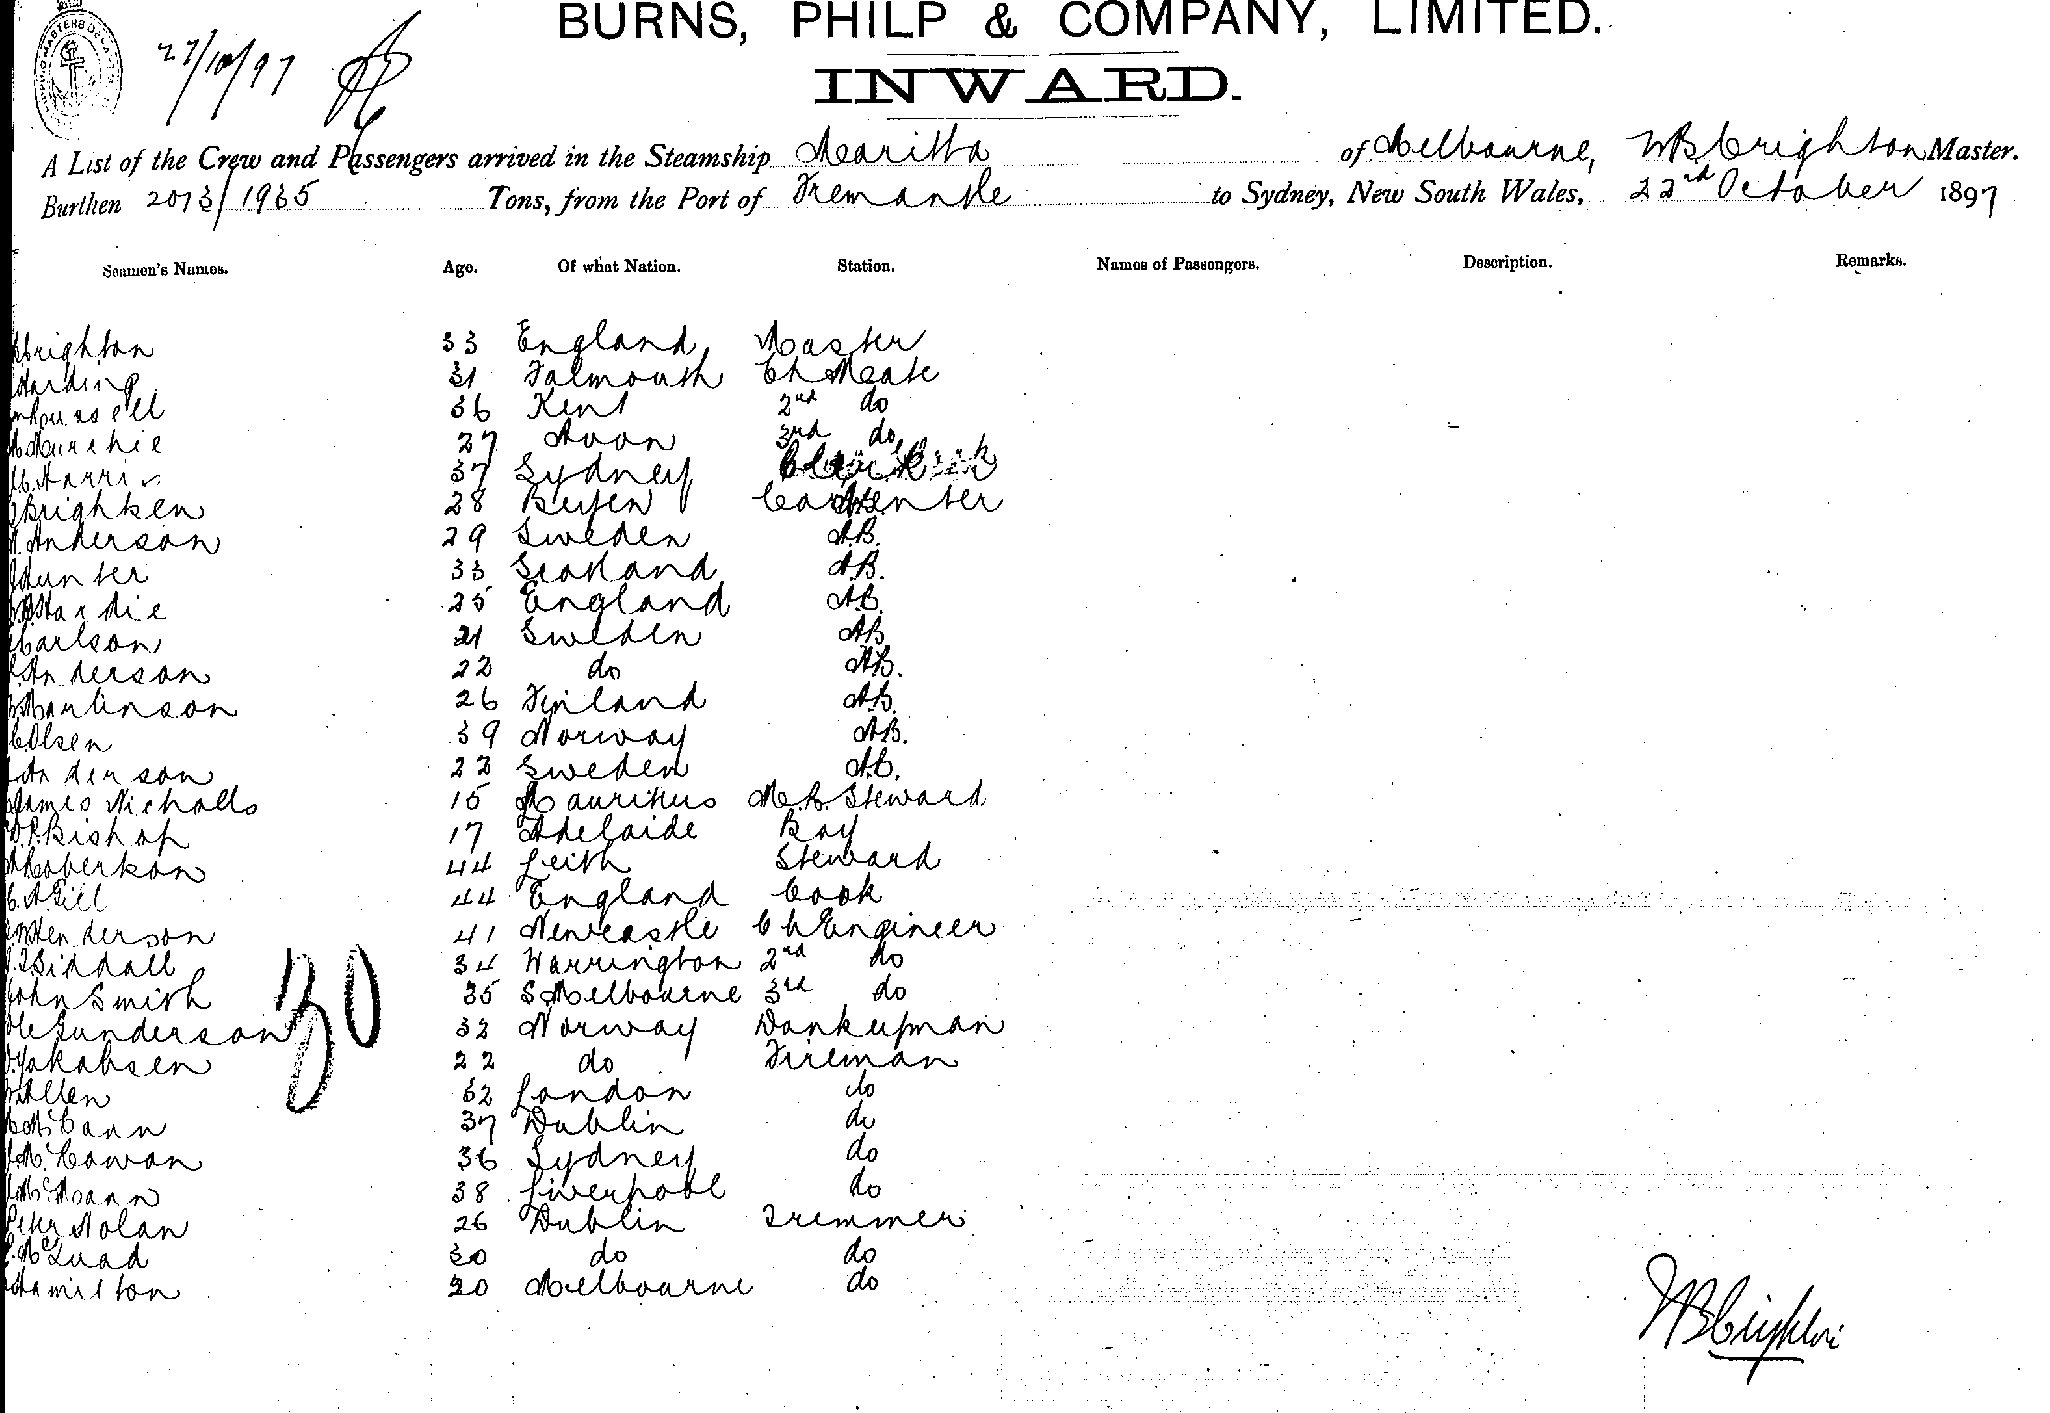 BURNS, PHILP & COMPANY, LIMITED.
27/10/97
INWARD.
A List of the Crew and Passengers arrived in the Steamship Maritta of Melbourne, WB Crighton Master.
Burthen 2013/1935 Tons, from the Port of Fremantle to Sydney, New South Wales, 22nd October 1897
Seamen's Names. Age. Of what Nation. Station. Names of Passengers. Description. Remarks.
Crighton 33 England Master
Harding 31 Falmouth Ch Mate
36 Kent 2nd do
Murchie 27 Avon 3rd do
Harris 37 Sydney
Brighten 28 Carpenter
Anderson 29 Sweden A.B.
Hunter 33 Scotland A.B.
Hardie 25 England A.B.
Carlson 21 Sweden AB
Anderson 22 do AB.
Martinson 26 Finland A.B.
Olsen 39 Norway AB.
Anderson 22 Sweden A.B.
James Nicholls 15 Mauritius M.R. Steward
Bishop 17 Adelaide Boy
Roberton 44 Leith Steward
Gill 44 England Cook
Henderson 41 Newcastle Ch Engineer
Siddall 34 Warrington 2nd do
John Smith 35 S Melbourne 3rd do
Gunderson 32 Norway Donkeyman
Jakabsen 22 do Fireman
Allen 32 London do
McCann 37 Dublin do
McCowan 36 Sydney do
38 Liverpool do
Peter Nolan 26 Dublin Tremmer
McQuad 30 do do
Hamilton 20 Melbourne do
30
WB Crighton